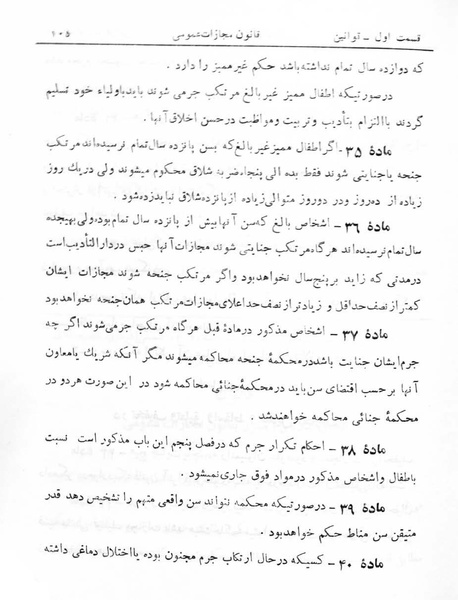 قسمت اول - قوانین
قانون مجازات عمومی
۱۰۵
که دوازده سال تمام نداشته باشد حکم غیر ممیز را دارد .
درصورتیکه اطفال ممیز غیر بالغ مرتکب جرمی شوند باید باولیاء خود تسلیم
گردند با التزام بتأدیب و تربیت و مواظبت در حسن اخلاق آنها .
مادهٔ ۳۵ - اگر اطفال ممیز غیر بالغ که بسن پانزده سال تمام نرسیده‌اند مرتکب
جنحه یا جنایتی شوند فقط بده الی پنجاه ضربه شلاق محکوم میشوند ولی در یك روز
زیاده از ده و در دو روز متوالی زیاده از پانزده شلاق نباید زده شود .
مادهٔ ۳۶ - اشخاص بالغ که سن آنها بیش از پانزده سال تمام بوده ولی بهیجده
سال تمام نرسیده‌اند هر گاه مرتکب جنایتی شوند مجازات آنها حبس در دارالتأدیب است
در مدتی که زاید بر پنج سال نخواهد بود و اگر مرتکب جنحه شوند مجازات ایشان
کمتر از نصف حداقل و زیادتر از نصف حد اعلای مجازات مرتکب همان جنحه نخواهد بود
مادهٔ ۳۷ - اشخاص مذکور در مادهٔ قبل هرگاه مرتکب جرمی شوند اگر چه
جرم ایشان جنایت باشد در محکمهٔ جنحه محاکمه میشوند مگر آنکه شریك یا معاون
آنها بر حسب اقتضای سن باید در محکمهٔ جنائی محاکمه شود در این صورت هر دو در
محکمهٔ جنائی محاکمه خواهند شد .
مادهٔ ۳۸ - احکام تکرار جرم که در فصل پنجم این باب مذکور است نسبت
باطفال و اشخاص مذکور در مواد فوق جاری نمیشود .
مادهٔ ۳۹ - در صورتیکه محکمه نتواند سن واقعی متهم را تشخیص دهد قدر
متیقن سن مناط حکم خواهد بود .
مادهٔ ۴۰ - کسیکه در حال ارتکاب جرم مجنون بوده یا اختلال دماغی داشته